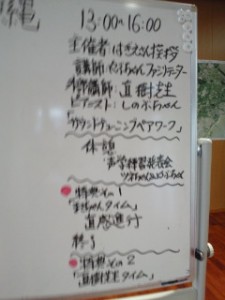 縄
13:00〜16:00
主催者:はぎえもん挨拶
講師:たけちゃんファシリテーター
直樹先生
ピアニスト:しのぶちゃん
「サウンドチューニングペアワーク」
休憩
声学練習発表会
特典その1
「まちゃんタイム」
直感進行
終了
特典その2
「直樹先生タイム」